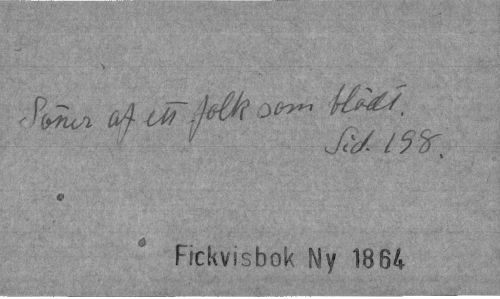 Söner af ett folk som blödt.
Sid. 198.
Fickvisbok Ny 1864